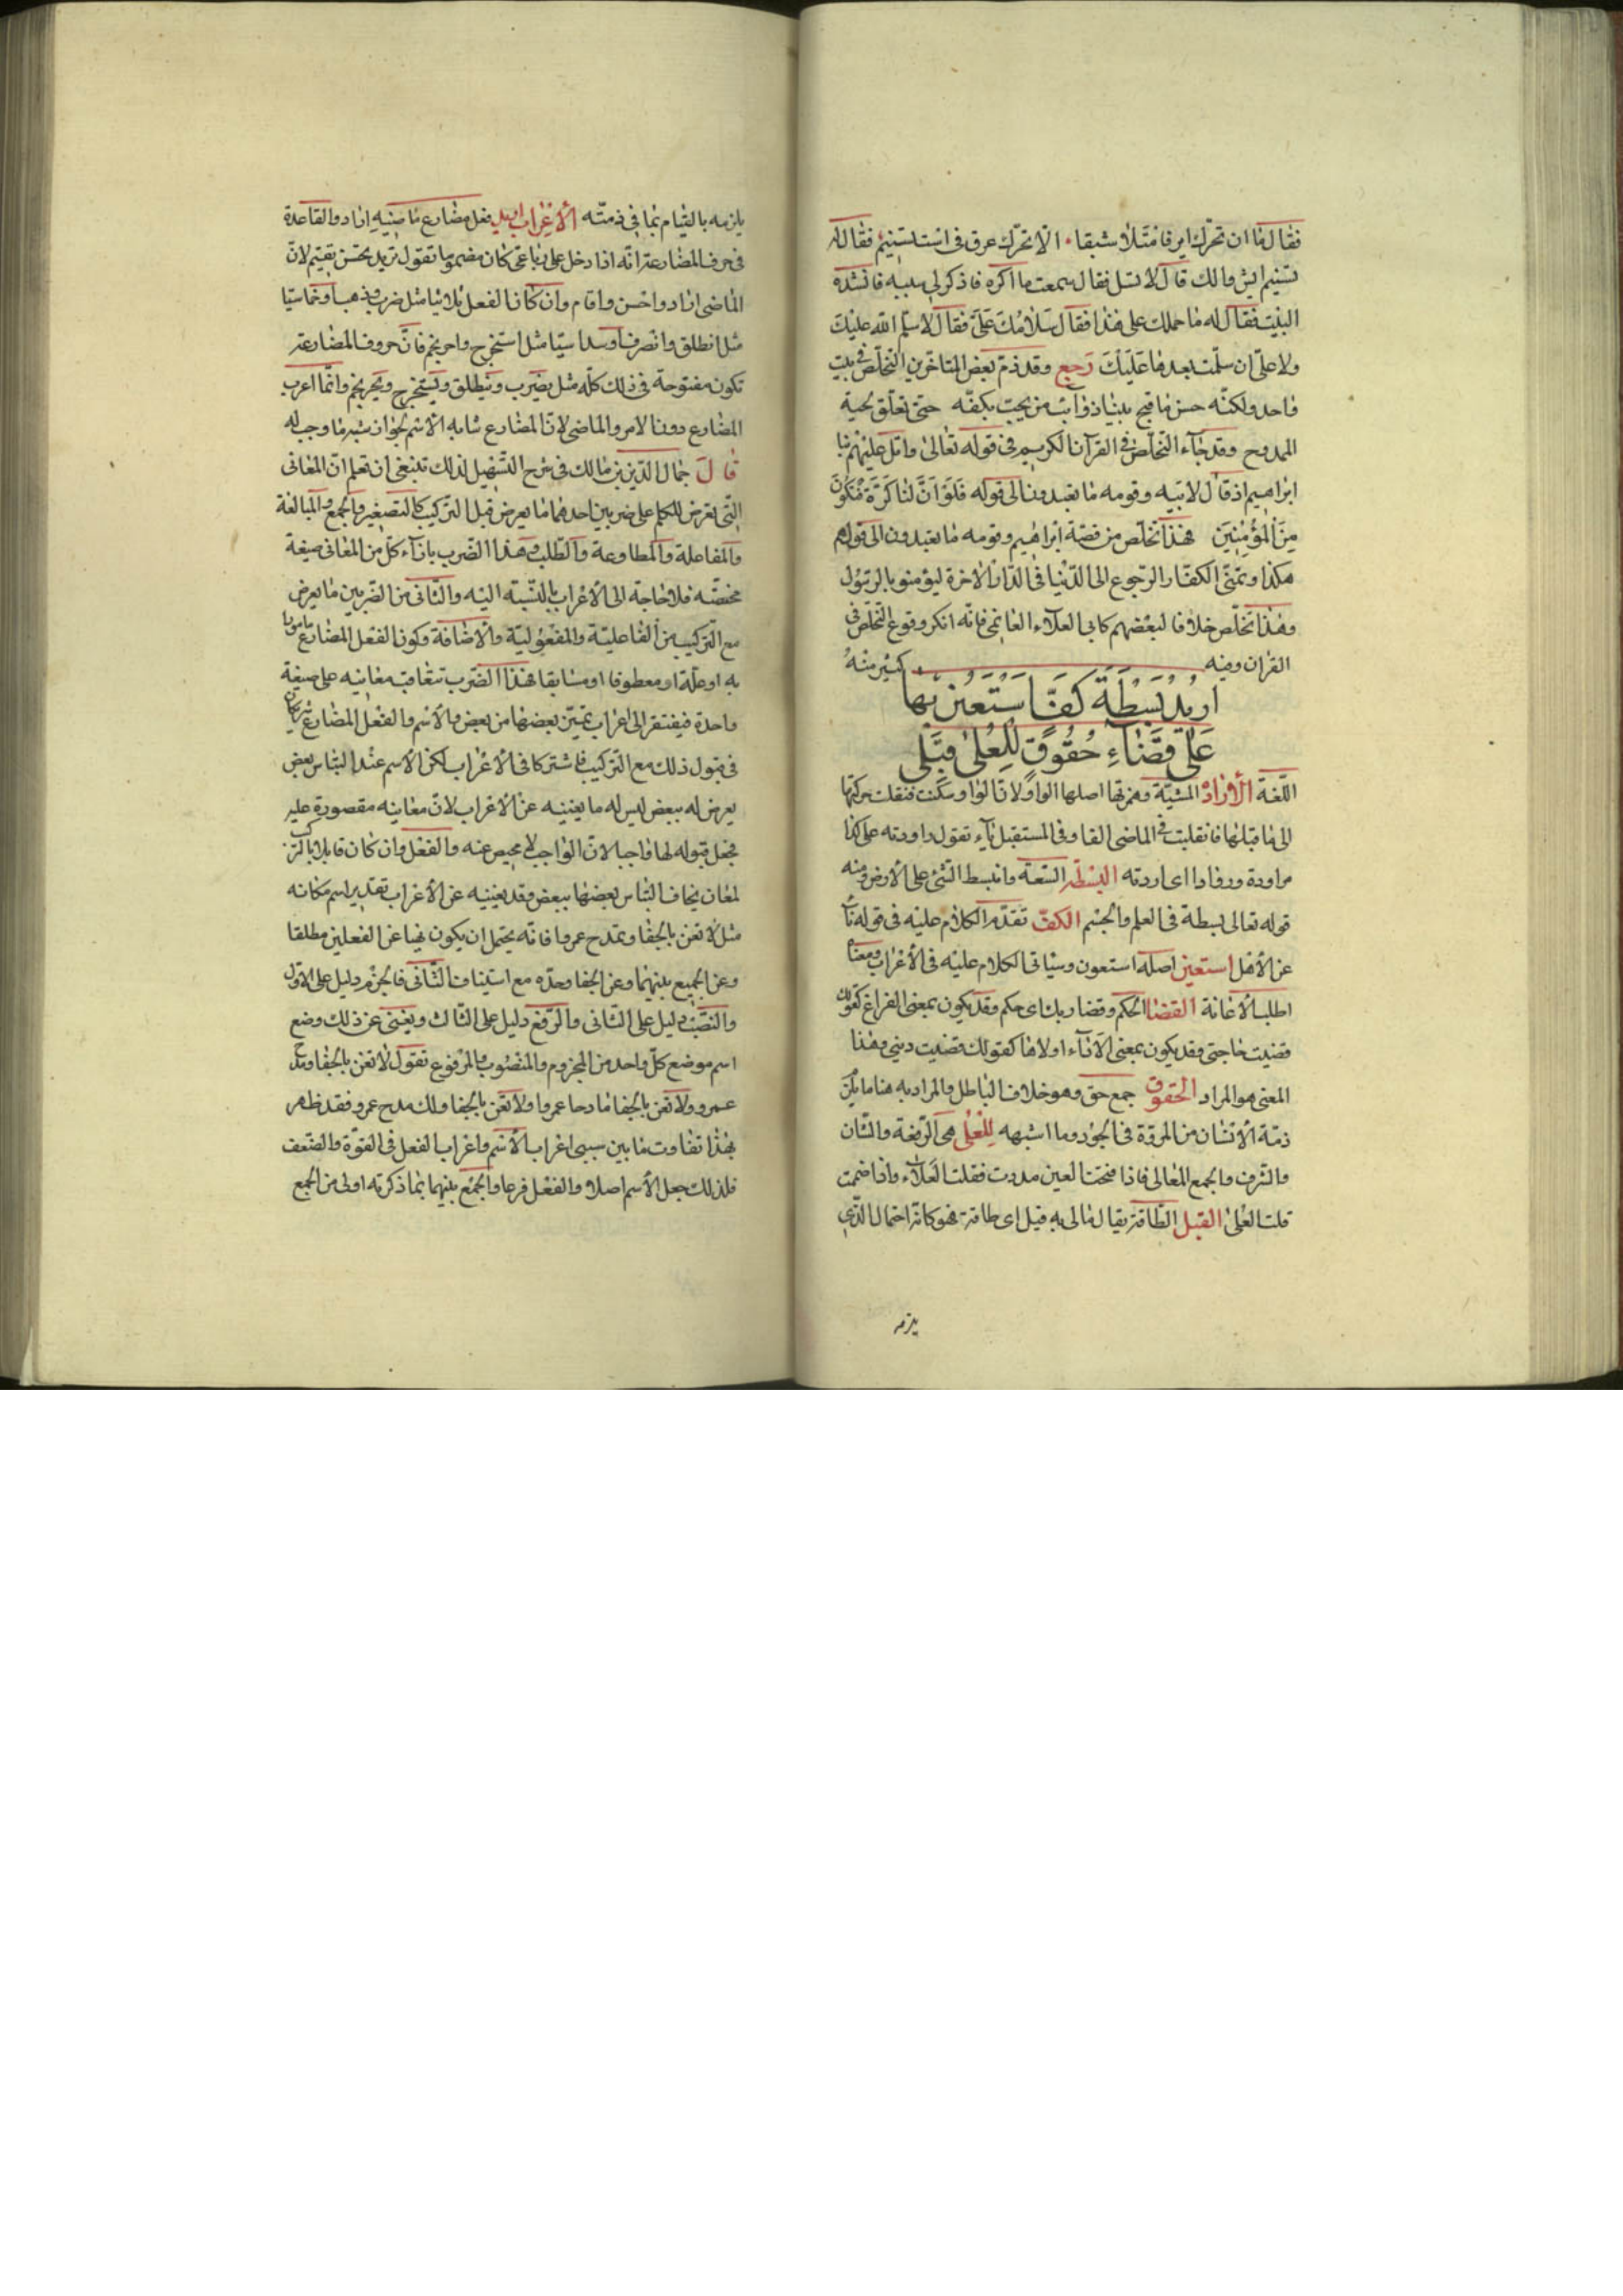 فقال ما ان تحرك اير فامتلا شبقا الا تحرك عرق في است تسنيم فقال له
تسنيم ايش ومالك قال لا تسل فقال سمعت ما اكره فاذكر لي سببه فانشده
البيت فقال له ما حملك على هذا فقال سلامك على فقال لا سلم الله عليك
ولا على ان سلمت بعدها عليك رجع وقد ذم بعض المتاخرين التخلص في بيت
واحد ولكنه حسن ما قبح بينا ذوابته من يحب بكفه حتى تعلق لحية
الممدوح وقد جاء التخلص في القرآن الكريم في قوله تعالى واتل عليهم نبا
ابراهيم اذ قال لابيه وقومه ما تعبدون الى قوله فلو ان لنا كرة فنكون
من المؤمنين فهذا تخلص من قصة ابراهيم وقومه ما تعبدون الى قولهم
هكذا وتمنى الكفار الرجوع الى الدنيا في الدار الاخرة ليؤمنو بالرسول
وهذا تخلص خلافا لبعضهم كابي العلاء الغانمي فانه انكر وقوع التخلص في
القران وفيه كثير منه
اريد بسطة كف استعين بها
على قضاء حقوق للعلى قبلي
اللغة الارادة المشية وهمزتها اصلها الواو لا تا الواو سكنت فنقلت حركتها
الى ما قبلها فانقلبت في الماضي الفا وفي المستقبل ياء تقول راودته على كذا
مراودة وروادا اي اردته البسطة السعة وانبسط الشئ على الارض ومنه
قوله تعالى بسطة في العلم والجسم الكف تقدم الكلام عليه في قوله ناء
عن الاهل استعين اصله استعون وسياتي الكلام عليه في الاعراب ومعناه
اطلب الاعانة القضا الحكم وقضا ربك اي حكم وقد يكون بمعنى الفراغ كقولك
قضيت حاجتي وقد يكون بمعنى الاداء اولاها كقولك قضيت ديني وهذا
المعنى هو المراد الحقوق جمع حق وهو خلاف الباطل والمراد به هنا ما يلزم
ذمة الانسان من المروة في الجود وما اشبهه للعلى هي الرفعة والشان
والشرف والجمع المعالي فاذا فتحت العين مددت فقلت العلاء واذا ضممت
قلت العلى القبل الطاقة يقال مالى به قبل اي طاقة فهو كانه احتمال الذي
يلزمه
يلزمه بالقيام بما في ذمته الاعراب اريد فعل مضارع ماضيه اراد والقاعدة
في حرف المضارعة انه اذا دخل على رباعي كان مضموما تقول تريد تحسن تقيم لان
الماضي اراد واحسن واقام وان كان الفعل ثلاثيا مثل ضرب وذهب او خماسيا
مثل انطلق وانصرف او سداسيا مثل استخرج واحرنجم فان حروف المضارعة
تكون مفتوحة في ذلك كله مثل يضرب وينطلق ويستخرج ويحرنجم وانما اعرب
المضارع دون الامر والماضي لان المضارع شابه الاسم لجواز شبه ما وجب له
قال جمال الدين بن مالك في شرح التسهيل لذلك تنبغي ان تعلم ان المعاني
التي تعرض للكلم على ضربين احدهما ما يعرض قبل التركيب كالتصغير والجمع والمبالغة
والمفاعلة والمطاوعة والطلب وهذا الضرب بازاء كل من المعاني صيغة
مختصة فلا حاجة الى الاعراب بالنسبة اليه والثاني من الضربين ما يعرض
مع التركيب من الفاعلية والمفعولية والاضافة وكون الفعل المضارع مامورا
به او علة او معطوفا او مسابقا فهذا الضرب تتعاقب معانيه على صيغة
واحدة فيفتقر الى اعراب تميز بعضها من بعض والاسم والفعل المضارع شريكان
في قبول ذلك مع التركيب فاشتركا في الاعراب لكن الاسم عند التباس بعض
يعرض له ببعض ليس له ما يغنيه عن الاعراب لان معانيه مقصورة عليه
فجعل قبوله لها واجبا لان الواجب لا محيص عنه والفعل وان كان قابلا بالتركيب
لمعان يخاف التباس بعضها ببعض فقد يغنيه عن الاعراب تقدير اسم مكانه
مثل لا تعن بالجفا وتمدح عمرا فانه يحتمل ان يكون نهيا عن الفعلين مطلقا
وعن الجمع بينهما وعن الجفا وحده مع استيناف الثاني فالجزم دليل على الاول
والنصب دليل على الثاني والرفع دليل على الثالث ويغنى عن ذلك وضع
اسم موضع كل واحد من المجزوم والمنصوب والمرفوع تقول لا تعن بالجفا ومدح
عمرو ولا تعن بالجفا مادحا عمروا ولا تعن بالجفا ولك مدح عمرو فقد ظهر
بهذا تفاوت ما بين سببي اعراب الاسم واعراب الفعل في القوة والضعف
فلذلك جعل الاسم اصلا والفعل فرعا والجمع بينهما بما ذكرته اولى من الجمع